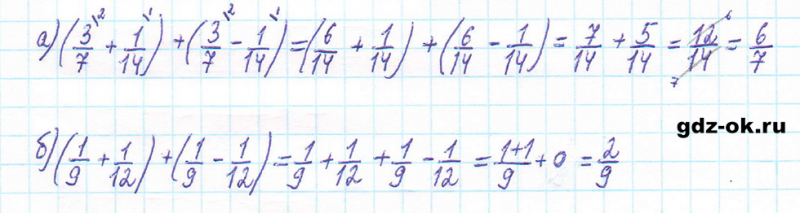 а) (3/7 \2 + 1/14 \1) + (3/7 \2 - 1/14 \1) = (6/14 + 1/14) + (6/14 - 1/14) = 7/14 + 5/14 = 12/14 6 7 = 6/7
gdz-ok.ru
б) (1/9 + 1/12) + (1/9 - 1/12) = 1/9 + 1/12 + 1/9 - 1/12 = 1+1/9 + 0 = 2/9